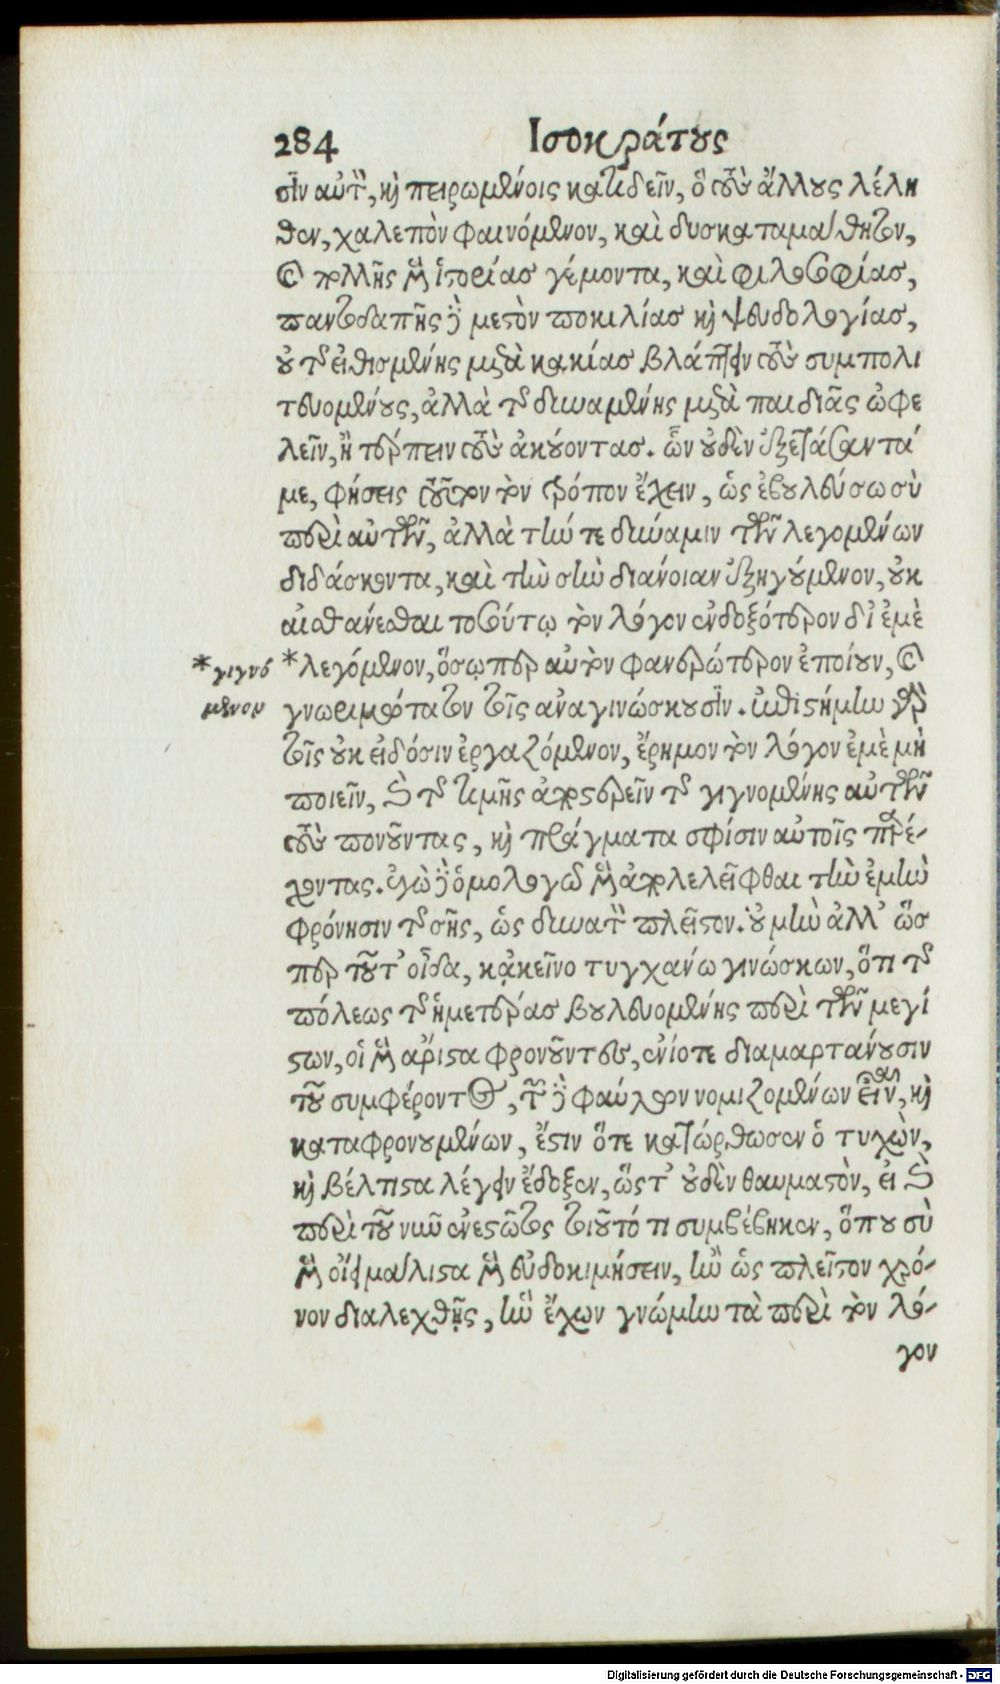 284 Ισοκράτους
σιν αὐτὸν, καὶ πειρωμένοις κατιδεῖν, ὃ τοὺς ἄλλους λέλη
θεν, χαλεπὸν φαινόμενον, καὶ δυσκαταμάθητον,
καὶ πολλῆς μὲν ἱστορίας γέμοντα, καὶ φιλοσοφίας,
παντοδαπῆς δὲ μεστὸν ποικιλίας καὶ ψευδολογίας,
οὐ τῆς εἰθισμένης μετὰ κακίας βλάπτειν τοὺς συμπολι
τευομένους, ἀλλὰ τῆς δυναμένης μετὰ παιδιᾶς ὠφε
λεῖν, ἢ τέρπειν τοὺς ἀκούοντας. ὧν οὐδὲν ἐξετάσαντά
με, φήσεις τοῦτον τὸν τρόπον ἔχειν, ὡς ἐβουλεύσω σὺ
περὶ αὐτῶν, ἀλλὰ τήν τε δύναμιν τῶν λεγομένων
διδάσκοντα, καὶ τὴν σὴν διάνοιαν ἐξηγούμενον, οὐκ
αἰσθάνεσθαι τοσούτῳ τὸν λόγον ἐνδοξότερον δι' ἐμὲ
*λεγόμενον, ὅσῳ περ αὐτὸν φανερώτερον ἐποίουν, καὶ
*γιγνό
μενον
γνωριμώτατον τοῖς ἀναγινώσκουσιν. ἐπιστήμην γὰρ
τοῖς οὐκ εἰδόσιν ἐργαζόμενον, ἔρημον τὸν λόγον ἐμὲ μὴ
ποιεῖν, καὶ τῆς τιμῆς ἀποστερεῖν τῆς γιγνομένης αὐτῶν
τοὺς πονοῦντας, καὶ πράγματα σφίσιν αὐτοῖς παρέ-
χοντας. ἐγὼ δὲ ὁμολογῶ μὲν ἀπολελεῖφθαι τὴν ἐμὴν
φρόνησιν τῆς σῆς, ὡς δυνατὸν πλεῖστον. οὐ μὴν ἀλλ' ὥσ
περ τοῦτ' οἶδα, κᾀκεῖνο τυγχάνω γινώσκων, ὅτι τῆς
πόλεως τῆς ἡμετέρας βουλευομένης περὶ τῶν μεγί
στων, οἱ μὲν ἄριστα φρονοῦντες, ἐνίοτε διαμαρτάνουσιν
τοῦ συμφέροντος, τῶν δὲ φαύλων νομιζομένων εἶναι, καὶ
καταφρονουμένων, ἔστιν ὅτε κατώρθωσεν ὁ τυχὼν,
καὶ βέλτιστα λέγειν ἔδοξεν, ὥστ' οὐδὲν θαυμαστὸν, εἰ καὶ
περὶ τοῦ νῦν ἐνεστῶτος τοιοῦτό τι συμβέβηκεν, ὅπου σὺ
μὲν οἴει μάλιστα μὲν εὐδοκιμήσειν, ἢν ὡς πλεῖστον χρό-
νον διαλεχθῇς, ἣν ἔχων γνώμην τὰ περὶ τὸν λό-
γον
Digitalisierung gefördert durch die Deutsche Forschungsgemeinschaft - DFG